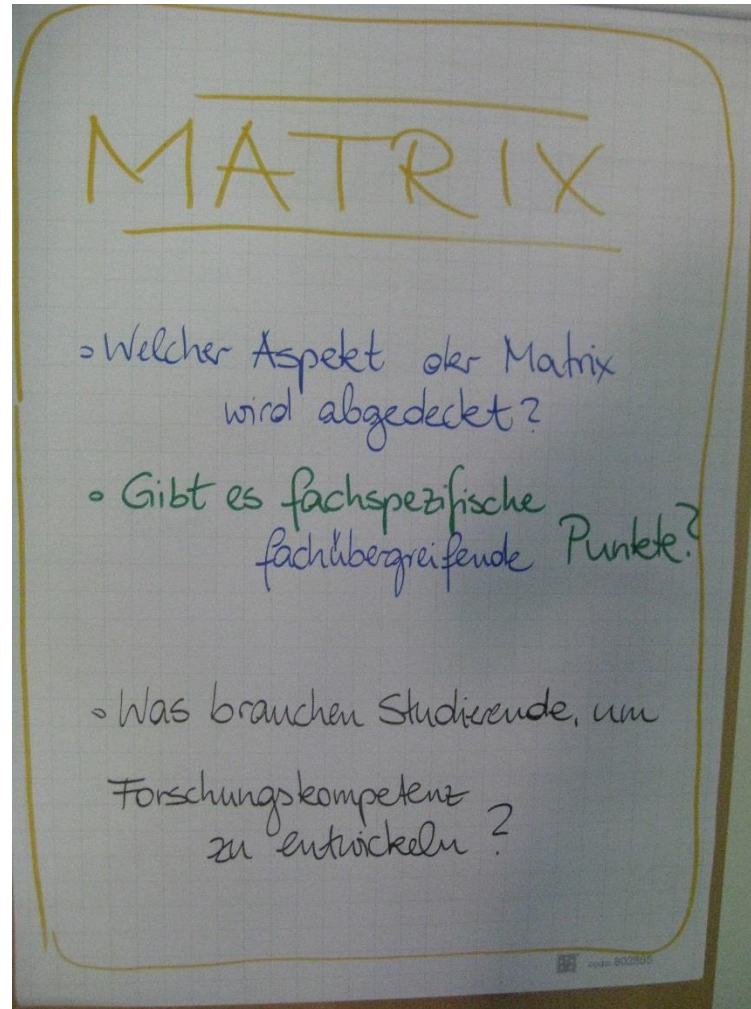 MATRIX
◦ Welcher Aspekt der Matrix
wird abgedeckt?
◦ Gibt es fachspezifische
fachübergreifende Punkte?
◦ Was brauchen Studierende, um
Forschungskompetenz
zu entwickeln?